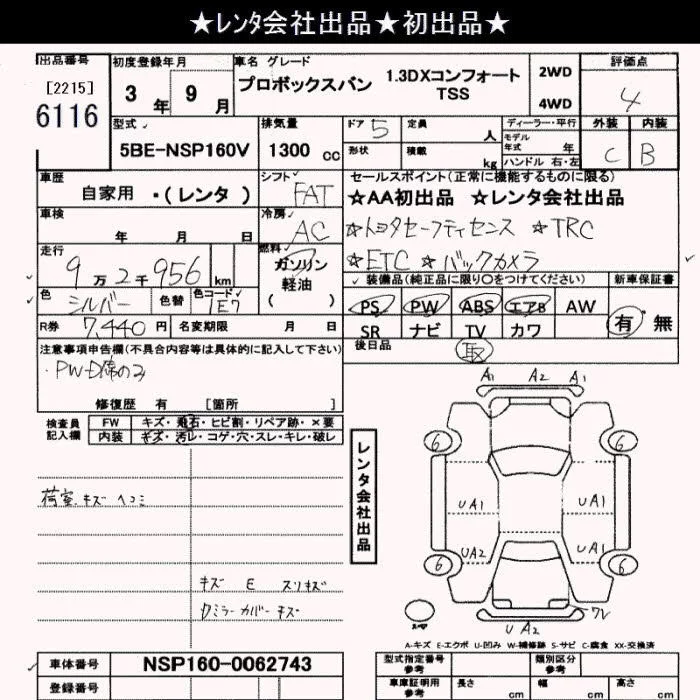 ★レンタ会社出品★初出品★
出品番号
[2215]
6116
初度登録年月
3年 9月
車名 グレード
プロボックスバン 1.3DXコンフォート
TSS
2WD
4WD
評価点
4
型式
5BE-NSP160V
排気量
1300 cc
ドア 5
定員
人
形状
積載
kg
ディーラー・平行
モデル
年式 年
ハンドル 右・左
外装
C
内装
B
車歴
自家用 ・(レンタ )
シフト
FAT
セールスポイント(正常に機能するものに限る)
★AA初出品 ★レンタ会社出品
☆トヨタセーフティセンス ☆TRC
☆ETC ☆バックカメラ
車検
年 月 日
冷房
AC
走行
9万2千956 km
燃料
ガソリン
軽油
( )
色
シルバー
色替
色コード
1E7
装備品(純正品に限り○をつけてください)
PS PW ABS エアB AW
SR ナビ TV カワ
新車保証書
有・無
R券 7,440円
名変期限 月 日
後日品
取
注意事項申告欄(不具合内容等は具体的に記入して下さい)
・PW-D席のみ
修復歴 有 [箇所 ]
検査員
記入欄
FW
キズ・飛石・ヒビ割・リペア跡・×要
内装
キズ・汚レ・コゲ・穴・スレ・キレ・破レ
荷室.キズ ヘコミ
キズ E スリキズ
ミラーカバーキズ
レンタ会社出品
A1 A2 A1
6 6
UA1 UA1
UA2 UA1
6 6
UA2
スペア
A-キズ E-エクボ U-凹み W-補修跡 S-サビ C-腐食 XX-交換済
車体番号
NSP160-0062743
登録番号
型式指定番号
参考
類別区分
参考
車庫証明用
参考
長さ
cm
幅
cm
高さ
cm